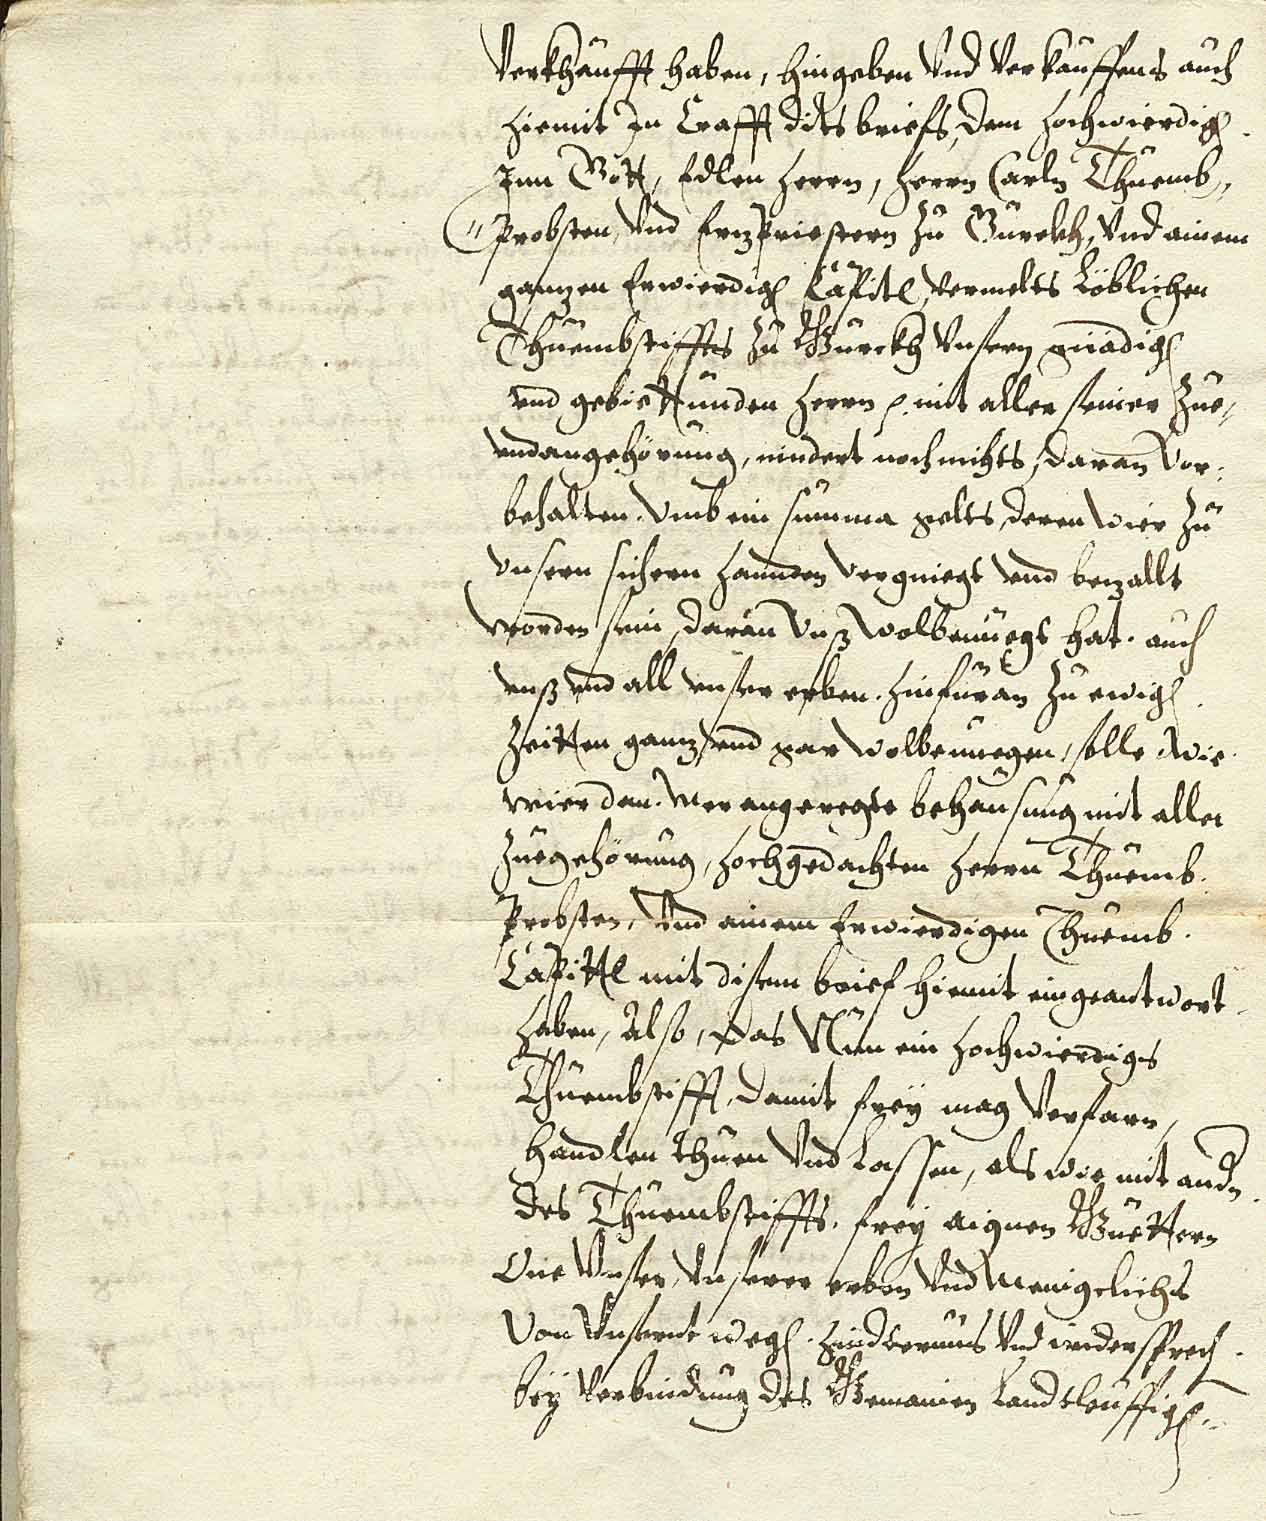 Verkhaufft haben, hingeben Vnd Verkauffens auch
hiemit In Crafft dits briefs, dem hochwierdig
Inn Gott, Edlen herrn, herrn Carln Thuemb„
Probsten, Vnd ErzPriestern Zu Gurckh, Vnd ainem
ganzen Erwierdig Capitl, Vermelts Löblichen
Thuembstiffts Zu Gurckh Vnsern gnädig
vnd gebiettunden herrn mit aller seiner Zue„
vndangehörung, nindert noch nichts, daran Vor„
behalten. Vmb ein summa gelts, deren Wier Zu
Vnsern sichern hannden Vergniegt vnd bezallt
worden sein, daran Vnß Wolbenüegt hat. auch
vnß vnd all vnser erben. hinfüran Zu ewig
Zeitten ganz vnd gar Wolbenuegen, solle Wie
wier dan. Mer angeregte behausung mit aller
Zuegehörung, hochgedachten herrn Thuemb.
Probsten, Vnd ainem Erwierdigen Thuemb.
Capittl mit disem brief hiemit eingeantwort
haben, Also, Das Nun ein hochwierdigs
Thuembstifft, damit frey mag Verfarn,
handlen thuen Vnd Lassen, als wie mit andn
des Thuembstiffts. frey aignen Guettern
One Vnser, Vnserer erben Vnd Menigclichs
Von Vnsernt weg. hindernus Vnd widersprech.
bey Verbindung des Gemainen Landtleuffig